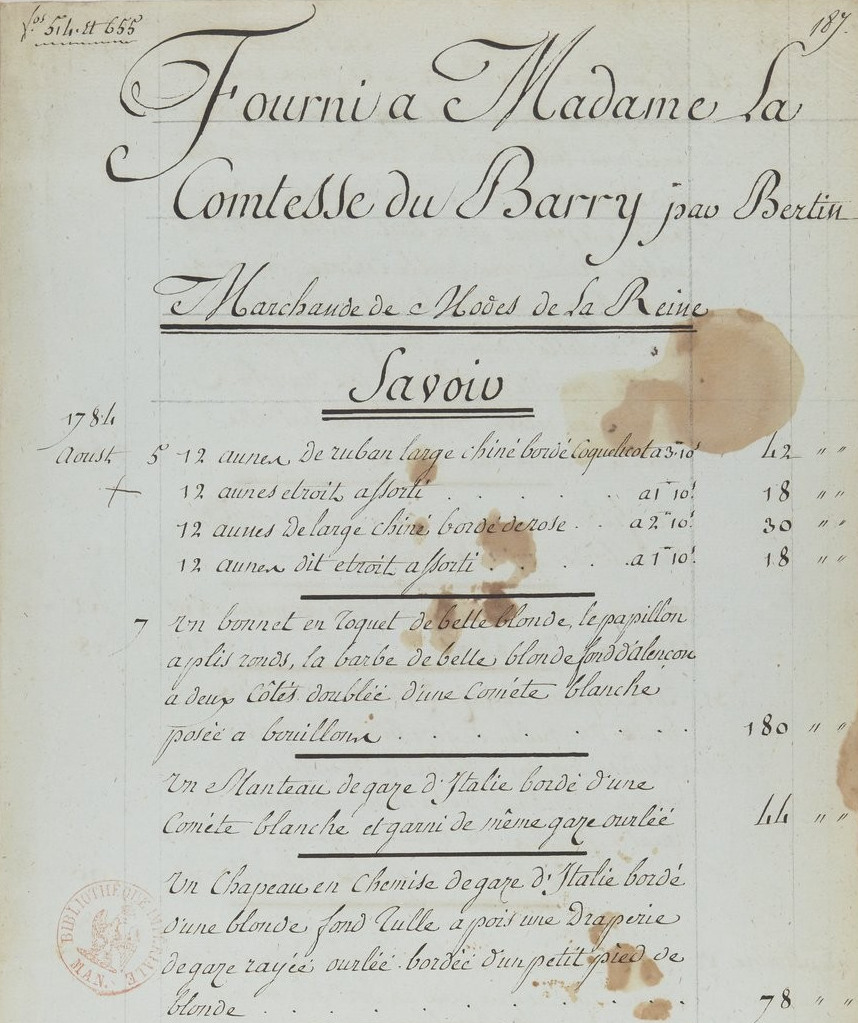 f.os 514. et 655
187.
Fourni a Madame La
Comtesse du Barry par Bertin
Marchande de Modes de La Reine
Savoir
1784
Aoust 5 12 aunes de ruban large chiné bordé Coquelicot a 3tt 10s 42 " "
12 aunes etroit assorti . . . . . a 1tt 10s 18 " "
12 aunes de large chiné bordé de rose . . a 2tt 10s 30 " "
12 aunes dit etroit assorti . . . . a 1tt 10s 18 " "
7 Un bonnet en Toquet de belle blonde, le papillon
a plis ronds, la barbe de belle blonde fond d'alençon
a deux Côtés doublée d'une Cométe blanche
posée a bouillons . . . . . . . . 180 " "
Un Manteau de gaze d'Italie bordé d'une
Cométe blanche et garni de même gaze ourléé 44 " "
Un Chapeau en Chemise de gaze d'Italie bordé
d'une blonde fond Tulle a pois une Draperie
de gaze rayée ourlée bordée d'un petit pied de
blonde . . . . . . . . 78 " "
BIBLIOTHÈQUE IMPÉRIALE
MAN.